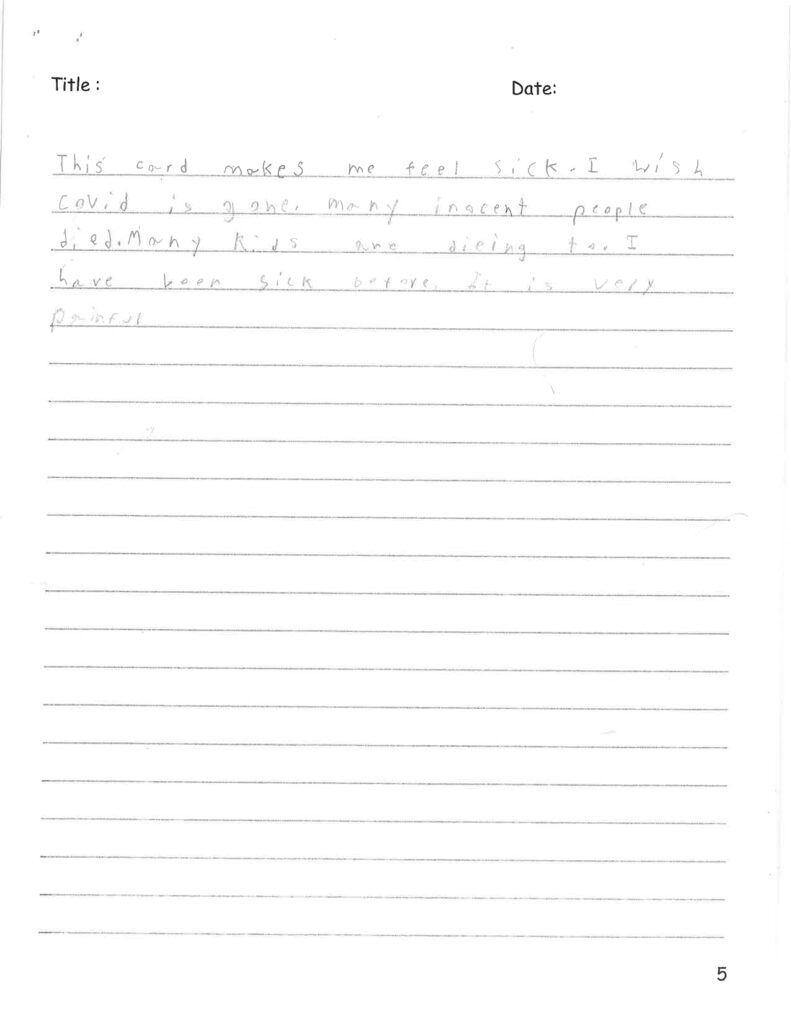 Title :
Date:
This card makes me feel sick. I wish
Covid is gone. many inocent people
died. Many kids are dieing to. I
have been sick before. It is very
painful
5